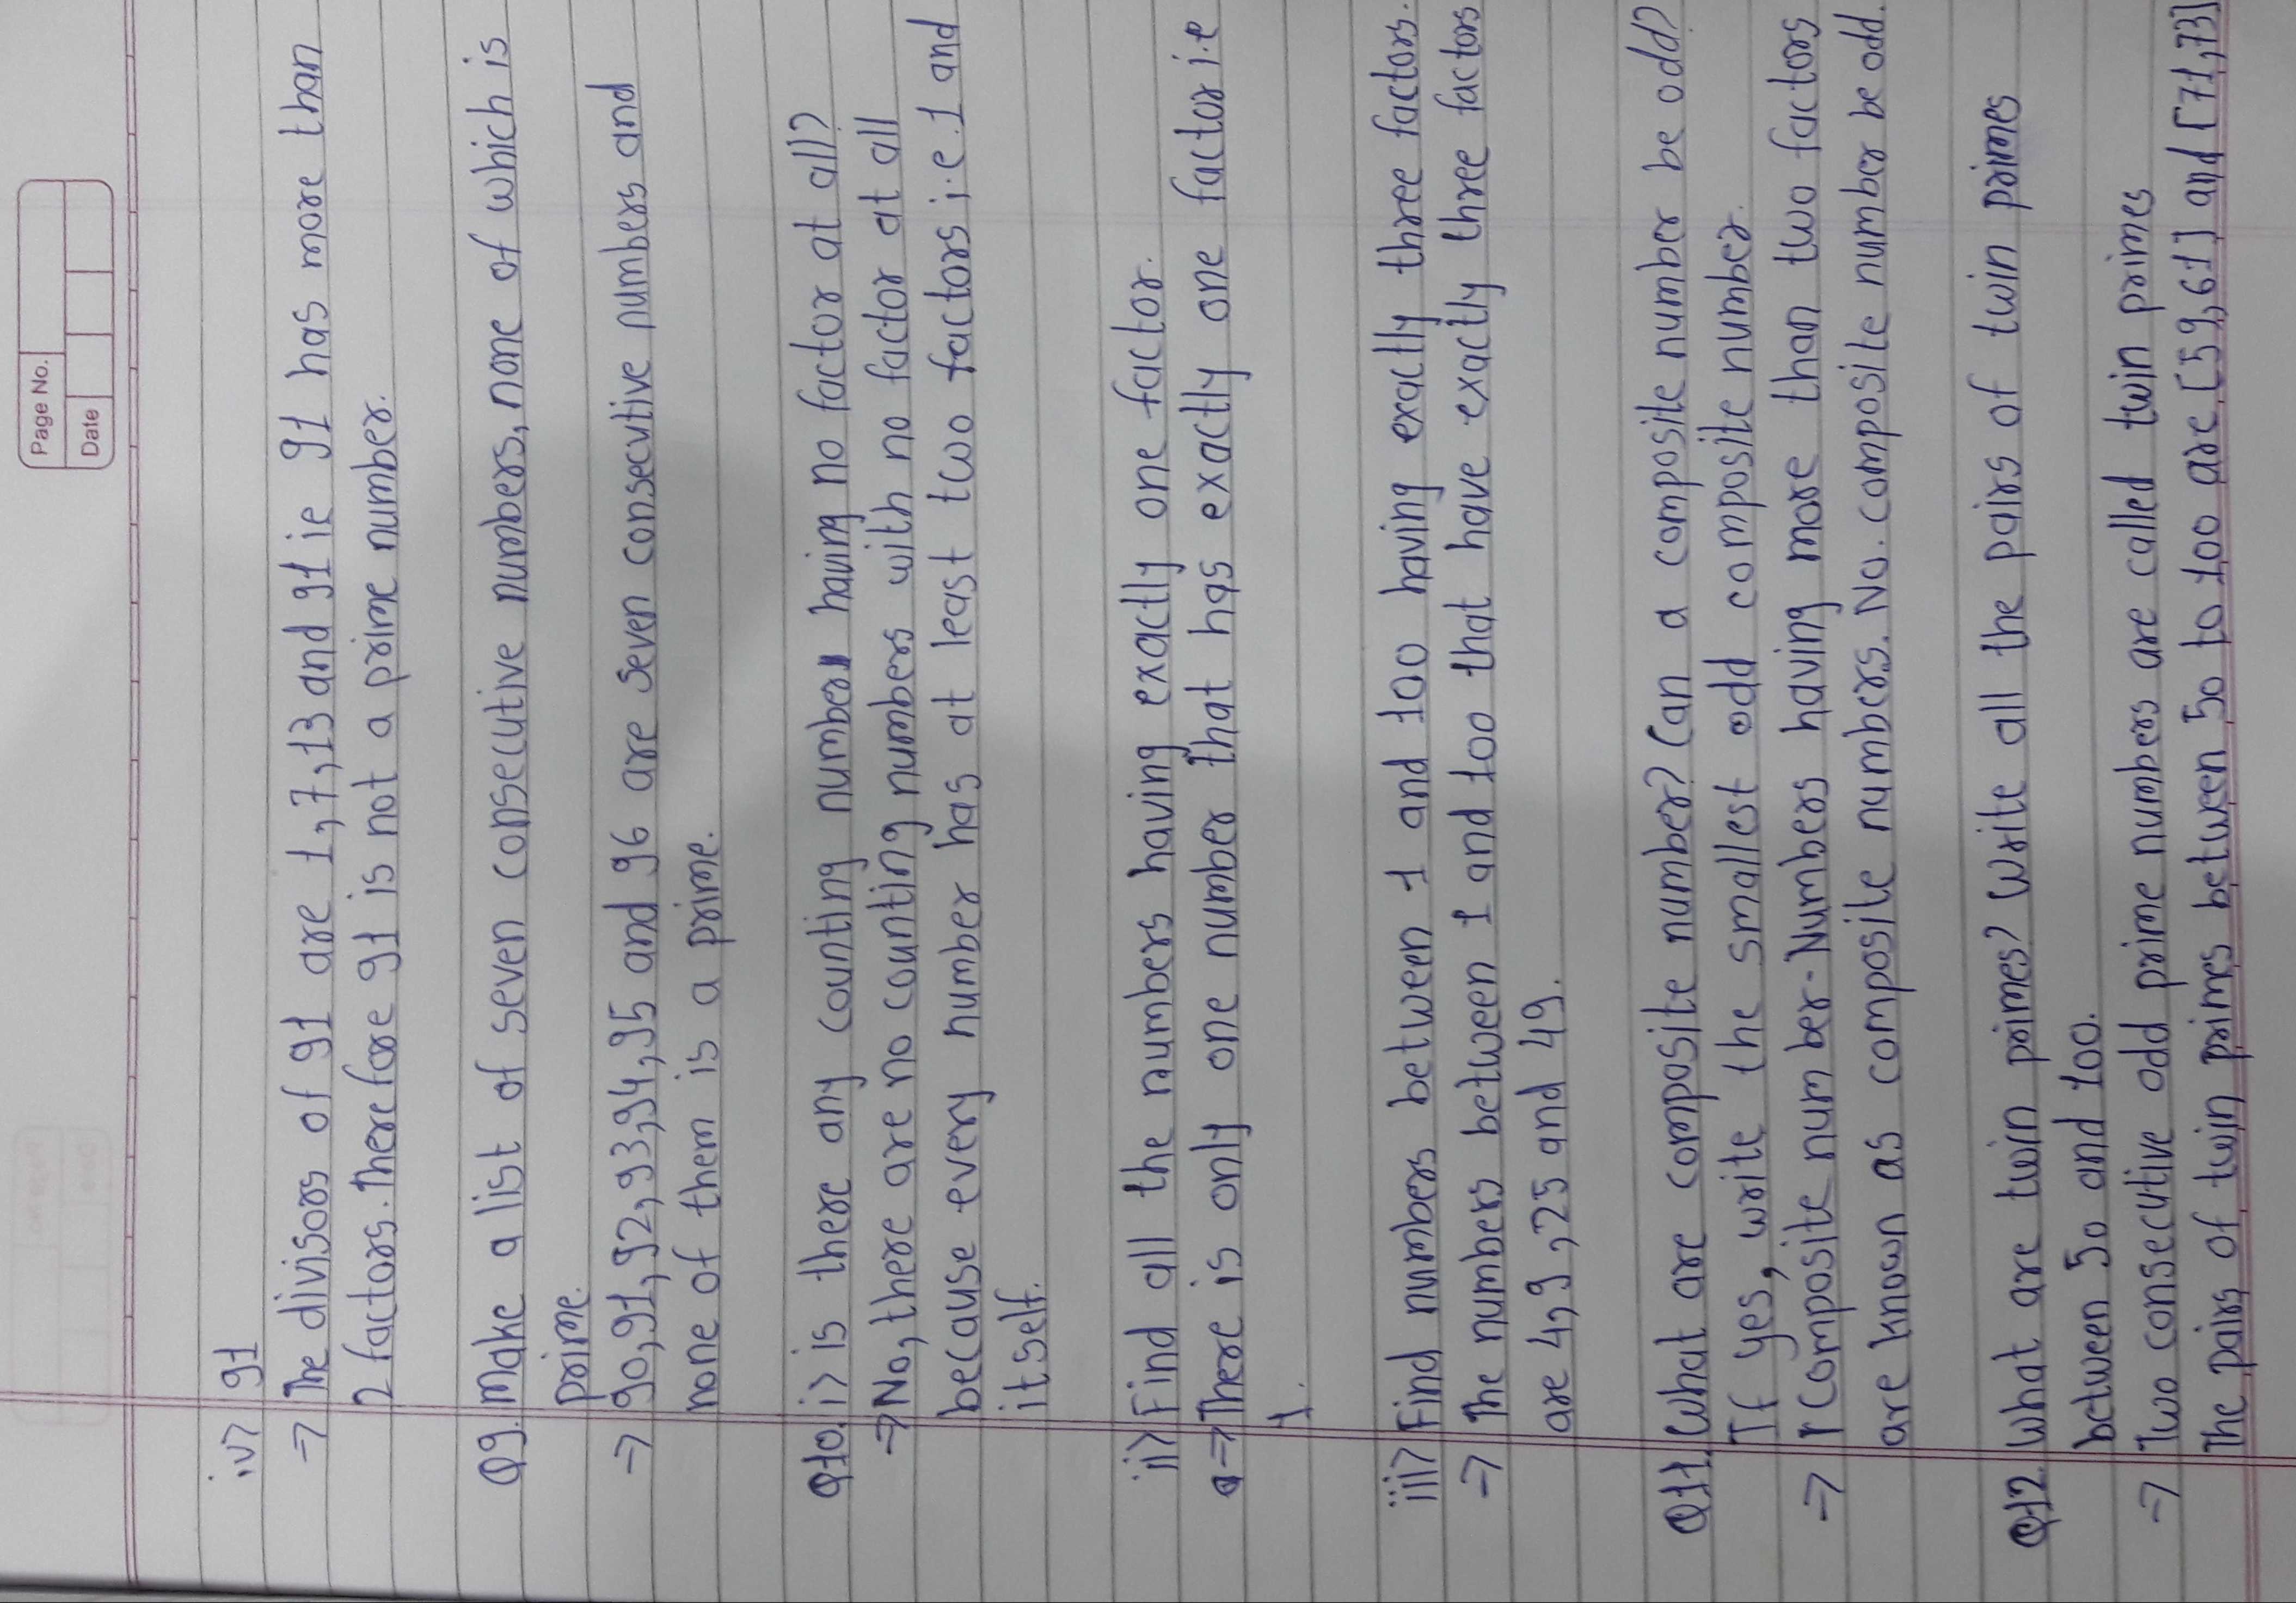 Page No.
Date
iv> 91
=> The divisors of 91 are 1,7,13 and 91 ie 91 has more than
2 factors. Therefore 91 is not a prime number.
Q9. Make a list of seven consecutive numbers, none of which is
prime.
=> 90,91,92,93,94,95 and 96 are seven consecutive numbers and
none of them is a prime.
Q10. i> is there any counting number having no factor at all?
=> No, there are no counting numbers with no factor at all
because every number has at least two factors i.e 1 and
itself.
ii> Find all the numbers having exactly one factor.
=> There is only one number that has exactly one factor i.e
1.
iii> Find numbers between 1 and 100 having exactly three factors.
=> The numbers between 1 and 100 that have exactly three factors
are 4,9,25 and 49.
Q11. What are composite number? Can a composite number be odd?
If yes, write the smallest odd composite number.
=> Composite number-Numbers having more than two factors
are known as composite numbers. No. composite number be odd.
Q12. What are twin primes? Write all the pairs of twin primes
between 50 and 100.
=> Two consecutive odd prime numbers are called twin primes
The pairs of twin primes between 50 to 100 are [59,61] and [71,73]